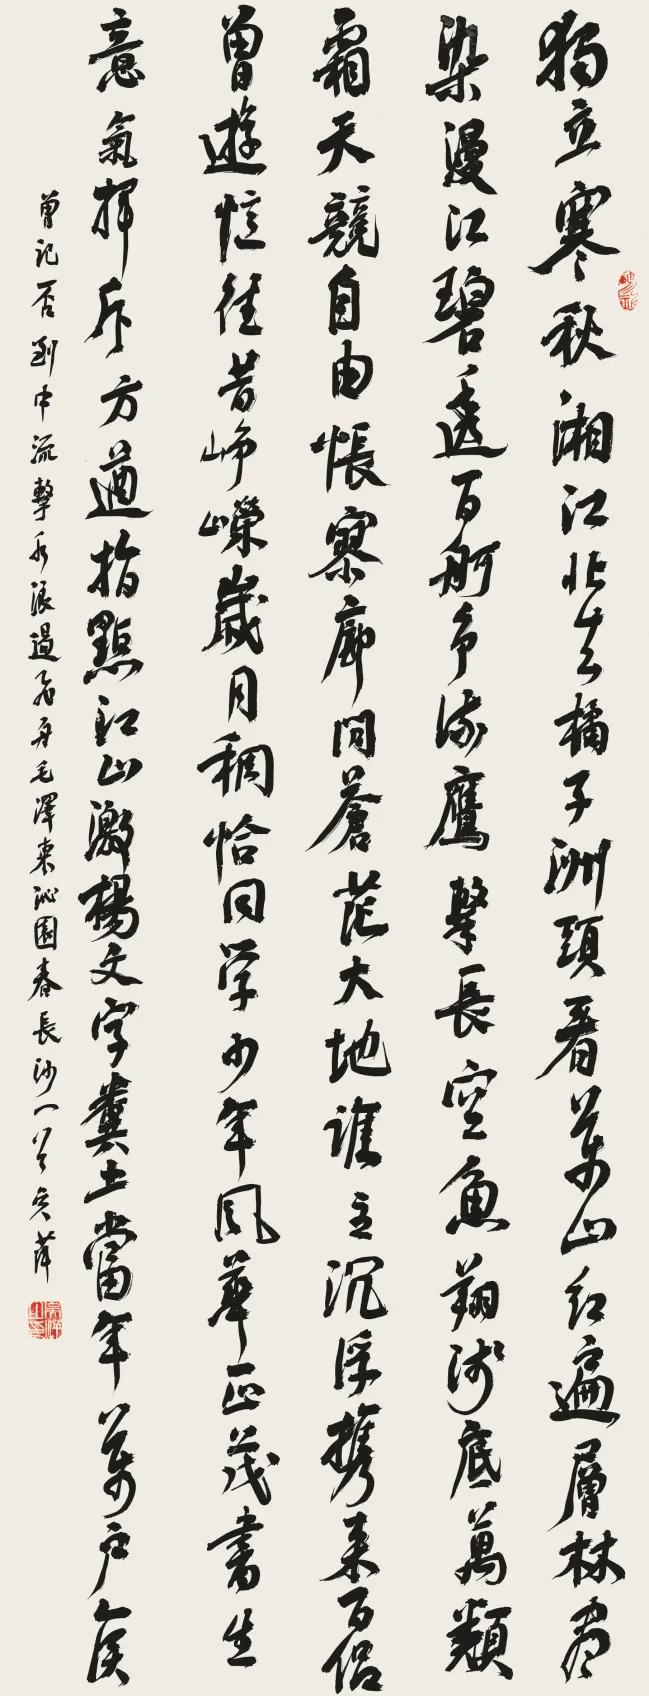 獨立寒秋湘江北去橘子洲頭看萬山红遍層林盡
染漫江碧透百舸争流鹰擊長空魚翔淺底萬類
霜天競自由悵寥廓問蒼茫大地誰主沉浮攜来百侣
曾遊憶往昔崢嶸歲月稠恰同学少年風華正茂書生
意氣揮斥方遒指點江山激揚文字糞土當年萬户侯
曾记否到中流擊水浪遏飛舟毛澤東沁園春長沙一首